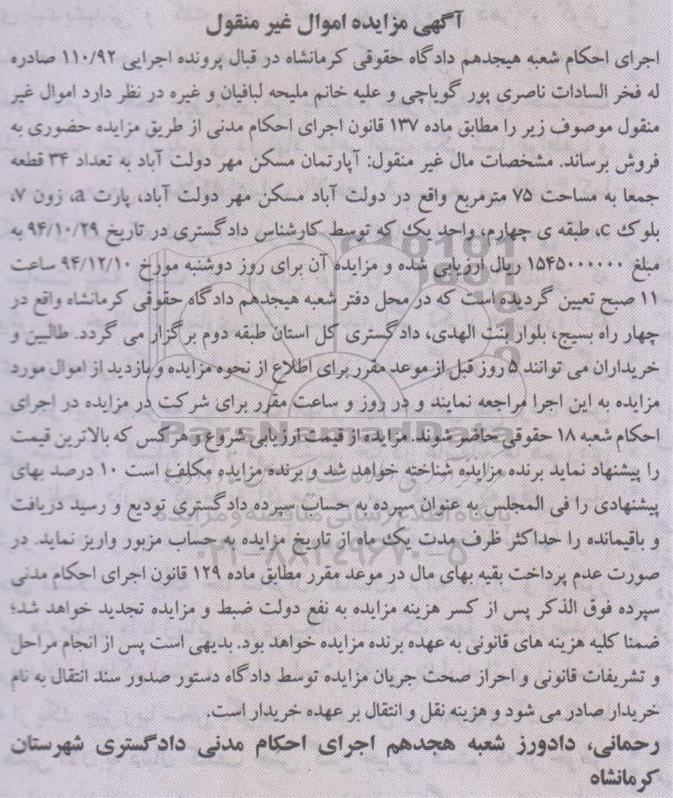 آگهی مزایده اموال غیر منقول
اجرای احکام شعبه هیجدهم دادگاه حقوقی کرمانشاه در قبال پرونده اجرایی ۱۱۰/۹۲ صادره
له فخر السادات ناصری پور گویاچی و علیه خانم ملیحه لبافیان و غیره در نظر دارد اموال غیر
منقول موصوف زیر را مطابق ماده ۱۳۷ قانون اجرای احکام مدنی از طریق مزایده حضوری به
فروش برساند. مشخصات مال غیر منقول: آپارتمان مسکن مهر دولت آباد به تعداد ۳۴ قطعه
جمعا به مساحت ۷۵ مترمربع واقع در دولت آباد مسکن مهر دولت آباد، پارت a، زون ۷،
بلوک c، طبقه ی چهارم، واحد یک که توسط کارشناس دادگستری در تاریخ ۹۴/۱۰/۲۹ به
مبلغ ۱۵۴۵۰۰۰۰۰۰ ریال ارزیابی شده و مزایده آن برای روز دوشنبه مورخ ۹۴/۱۲/۱۰ ساعت
۱۱ صبح تعیین گردیده است که در محل دفتر شعبه هیجدهم دادگاه حقوقی کرمانشاه واقع در
چهار راه بسیج، بلوار بنت الهدی، دادگستری کل استان طبقه دوم برگزار می گردد. طالبین و
خریداران می توانند ۵ روز قبل از موعد مقرر برای اطلاع از نحوه مزایده و بازدید از اموال مورد
مزایده به این اجرا مراجعه نمایند و در روز و ساعت مقرر برای شرکت در مزایده در اجرای
احکام شعبه ۱۸ حقوقی حاضر شوند. مزایده از قیمت ارزیابی شروع و هر کس که بالاترین قیمت
را پیشنهاد نماید برنده مزایده شناخته خواهد شد و برنده مزایده مکلف است ۱۰ درصد بهای
پیشنهادی را فی المجلس به عنوان سپرده به حساب سپرده دادگستری تودیع و رسید دریافت
و باقیمانده را حداکثر ظرف مدت یک ماه از تاریخ مزایده به حساب مزبور واریز نماید. در
صورت عدم پرداخت بقیه بهای مال در موعد مقرر مطابق ماده ۱۲۹ قانون اجرای احکام مدنی
سپرده فوق الذکر پس از کسر هزینه مزایده به نفع دولت ضبط و مزایده تجدید خواهد شد؛
ضمنا کلیه هزینه های قانونی به عهده برنده مزایده خواهد بود. بدیهی است پس از انجام مراحل
و تشریفات قانونی و احراز صحت جریان مزایده توسط دادگاه دستور صدور سند انتقال به نام
خریدار صادر می شود و هزینه نقل و انتقال بر عهده خریدار است.
رحمانی، دادورز شعبه هجدهم اجرای احکام مدنی دادگستری شهرستان
کرمانشاه
ParsNamadData
پایگاه اطلاع رسانی مناقصه و مزایده
۰۲۱-۸۸۳۴۹۶۷۰-۵